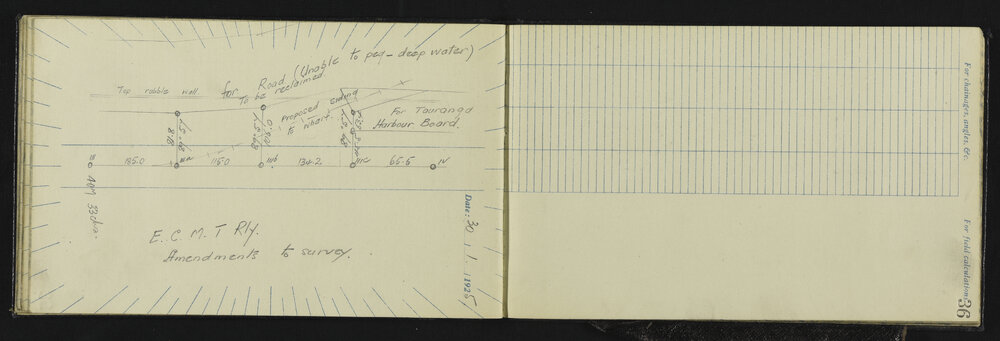 for Road (Unable to peg - deep water)
To be reclaimed
Top rubble wall
Proposed Siding
to wharf.
For Tauranga
Harbour Board.
185.0
115.0
134.2
65.5
IIIa
IIIb
IIIc
IV
E. C. M. T Rly.
Amendments to survey.
Date: 30 1 1925
For chainages, angles, &c.
For field calculations
36